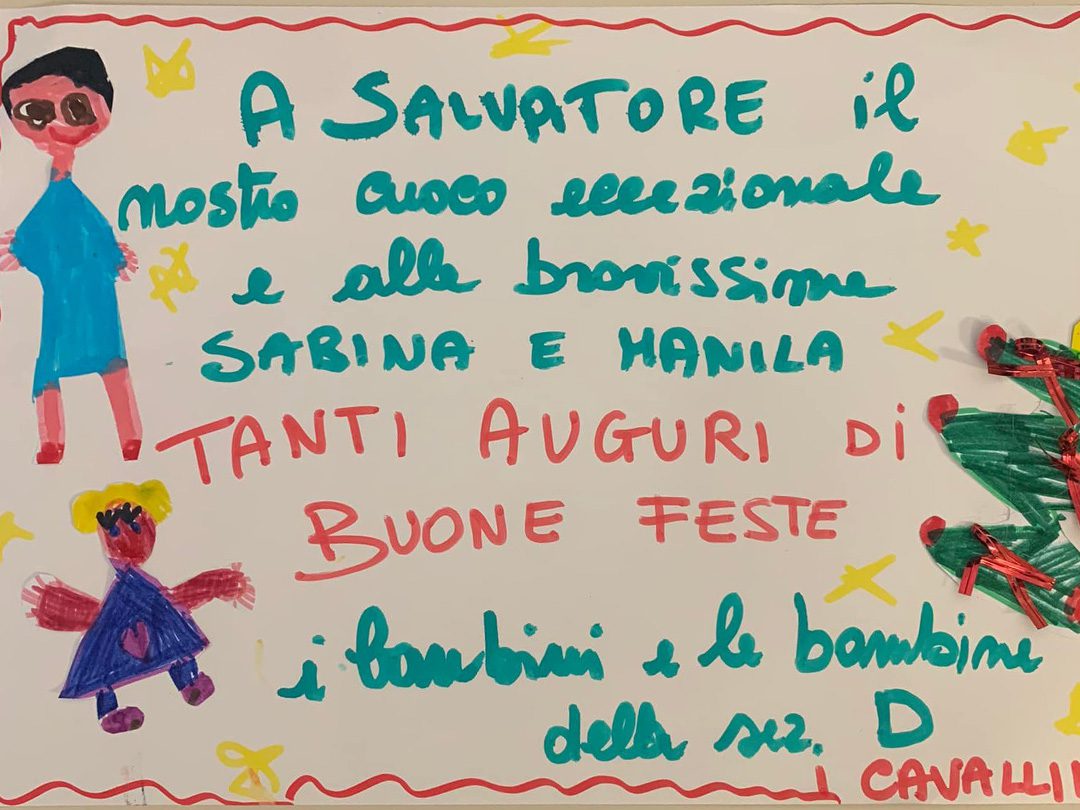 A SALVATORE il
nostro cuoco eccezionale
e alle bravissime
SABINA E MANILA
TANTI AUGURI DI
BUONE FESTE
i bambini e le bambine
della sez. D
I CAVALLI